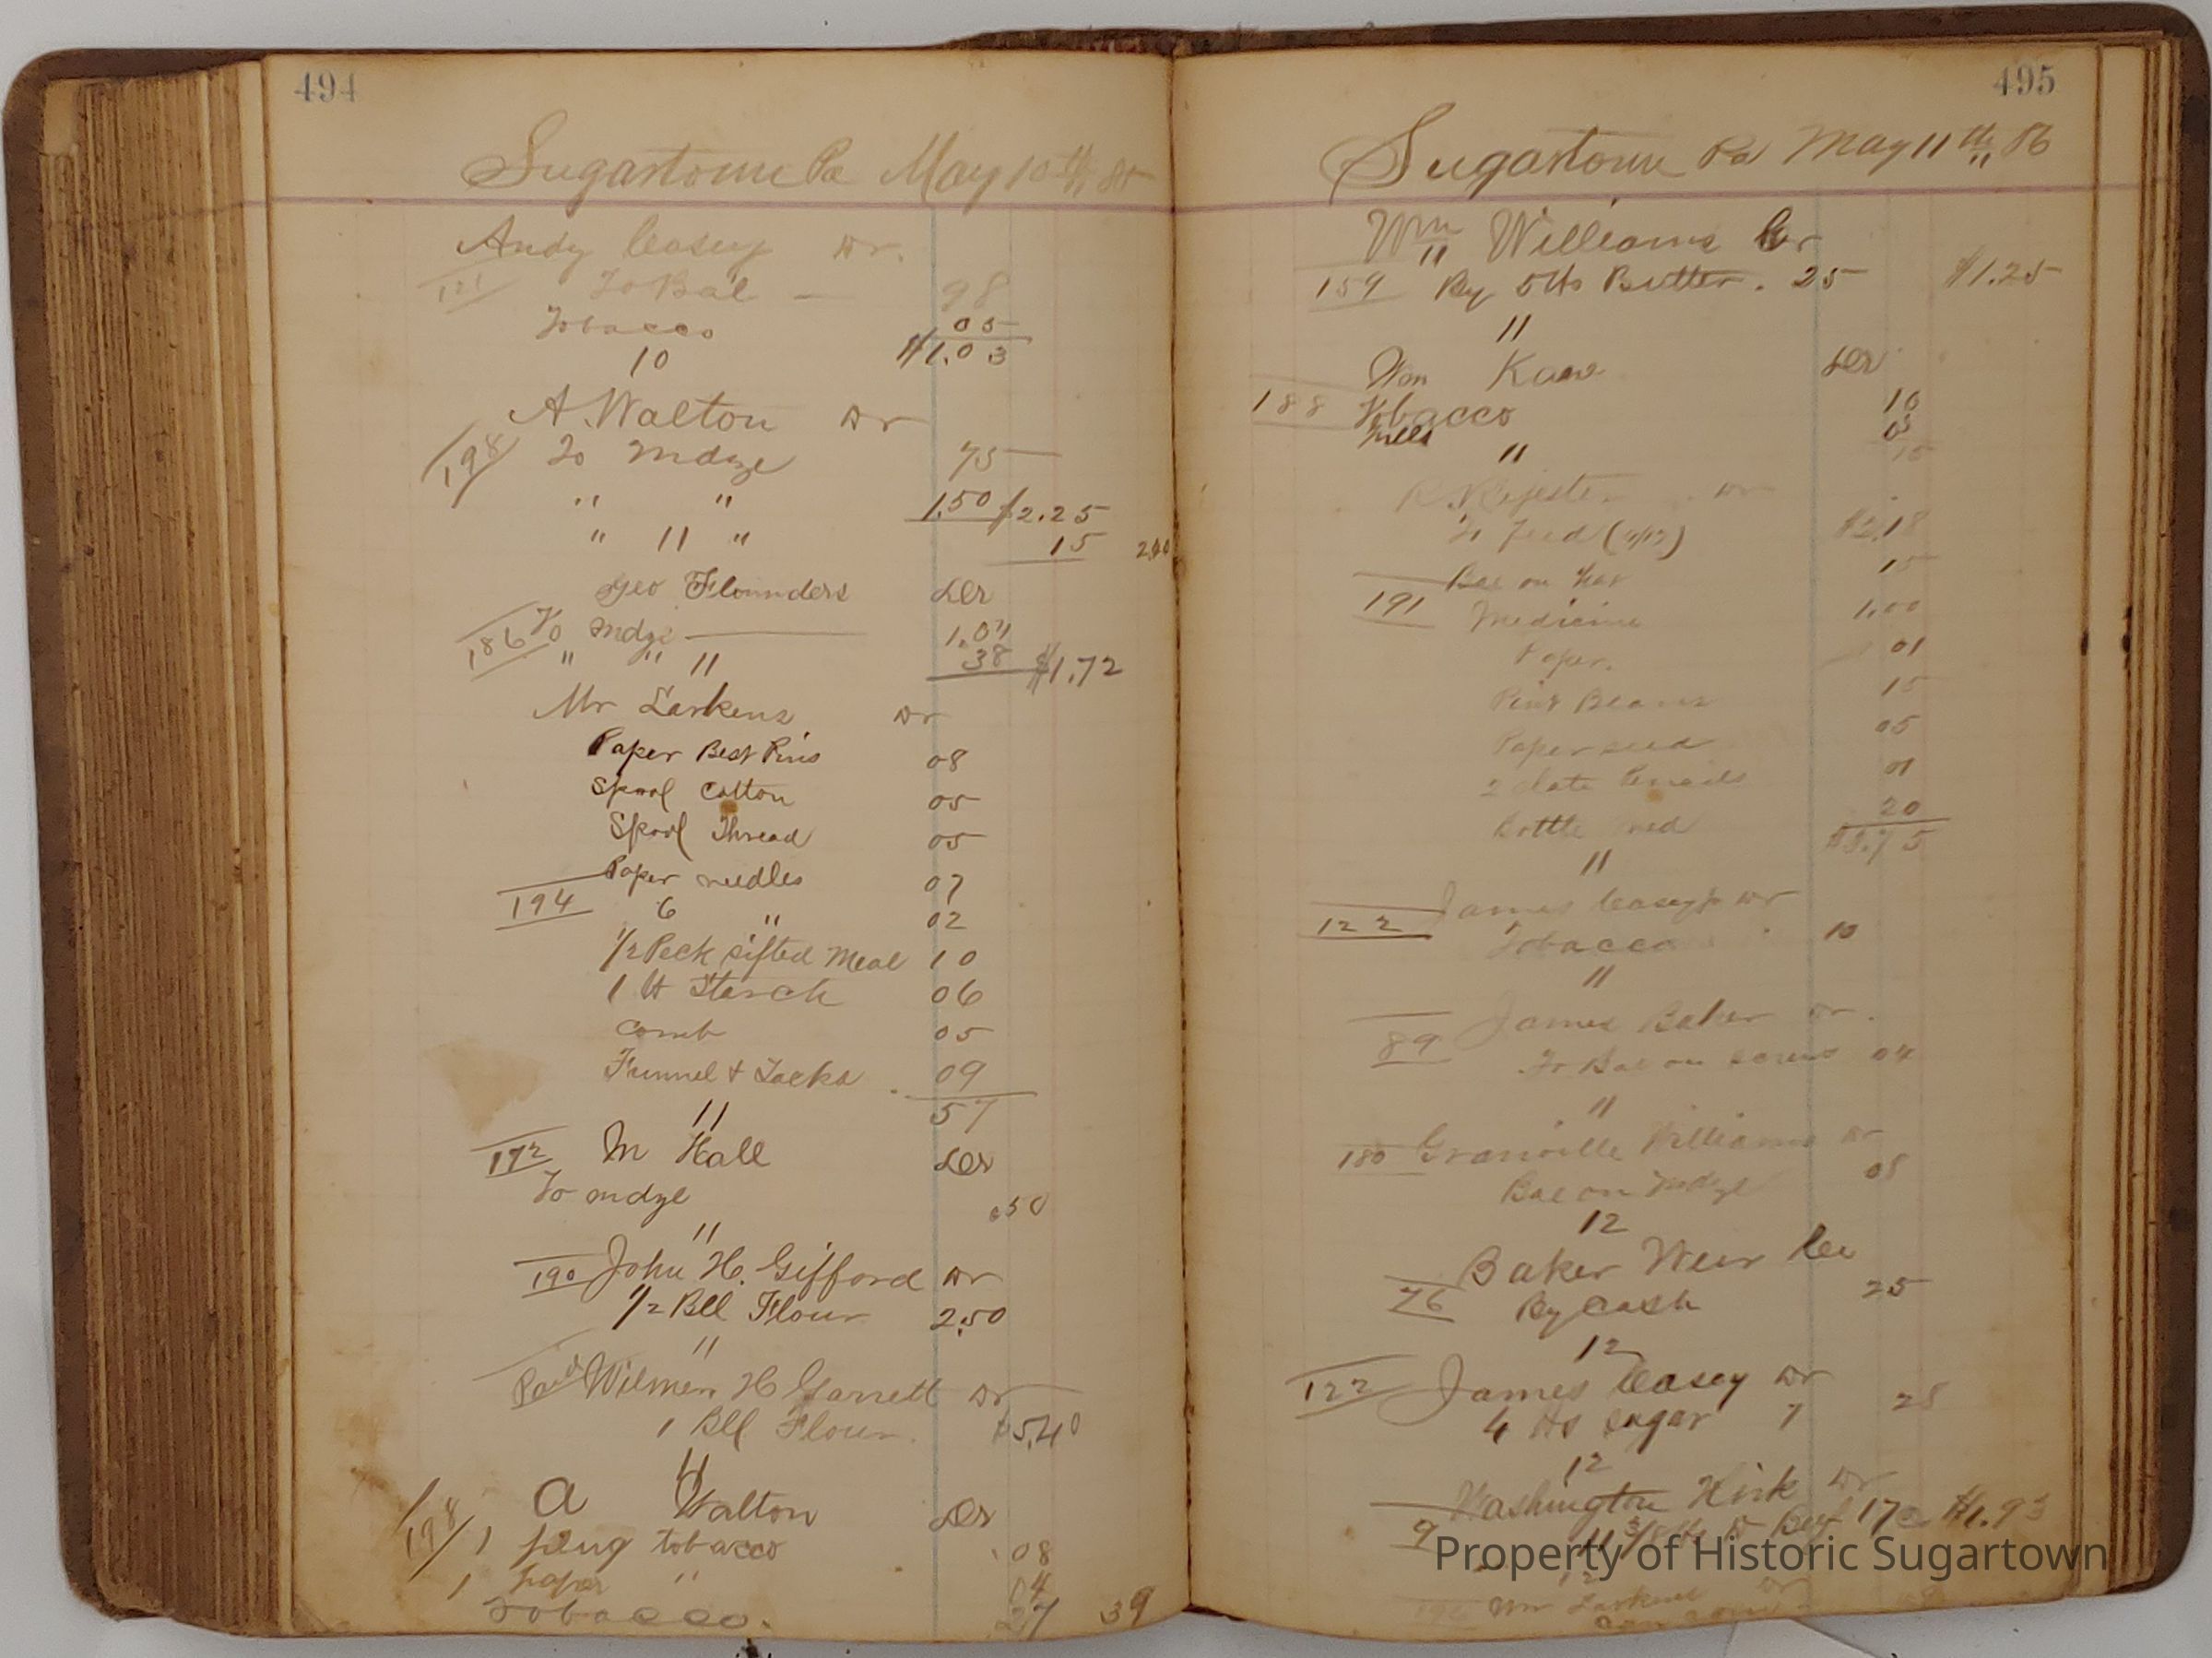 494
Sugartown Pa May 10th
Andy Casey Dr.
121 To Bal — 98
Tobacco 05
10 $1.03
A. Walton Dr
198 To Mdze 75
" " 1.50 $2.25
" 11 " 15 2.40
Geo Flounders Dr
186 To Mdze 1.04
" " 11 38 $1.72
Mr Larkens Dr
Paper Best Pins 08
Spool Cotton 05
Spool Thread 05
Paper needles 07
194 6 " 02
1/2 Peck sifted Meal 10
1 lb Starch 06
Comb 05
Funnel & Tacks 09
11 57
172 M Hall Dr
To mdze .50
11
190 John H. Gifford Dr
1/2 Bll Flour 2.50
11
Paid Wilmer H Garrett Dr
1 Bll Flour $5.40
11
A Walton Dr
198 1 plug tobacco 08
1 paper " 04
Tobacco. 27 39
495
Sugartown Pa May 11th 86
Wm Williams Cr
11
159 By 5 lbs Butter. 25 $1.25
11
Wm Kane Dr
188 Tobacco 10
05
11 15
Dr
To Feed $2.18
Bal on 15
191 Medicine 1.00
Paper. 01
Pint Beans 15
Paper seed 05
2 Slate Pencils 01
Bottle 20
11 $3.75
James Casey Dr
122 Tobacco 10
11
James Baker Dr.
89 To Bal on screws 04
11
180 Granville Williams Dr
Bal on Mdze 05
12
Baker Weir Cr
76 By Cash 25
12
122 James Casey Dr
4 lbs sugar 7 28
12
Washington Kirk Dr
9 11 3/8 lbs Beef 17c $1.93
12
Mr Larkens Dr
Property of Historic Sugartown